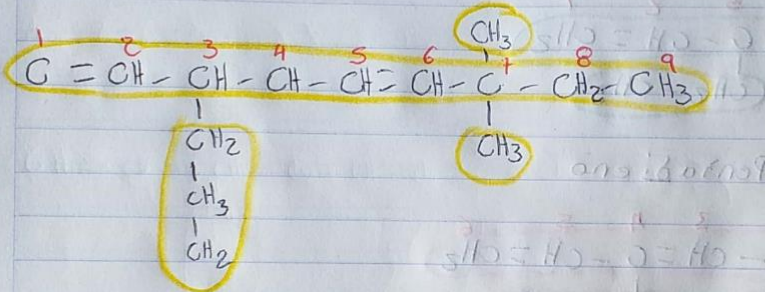 CH3
1 2 3 4 5 6 7 8 9
C = CH - CH - CH - CH = CH - C - CH2 - CH3
CH2 CH3
CH3
CH2